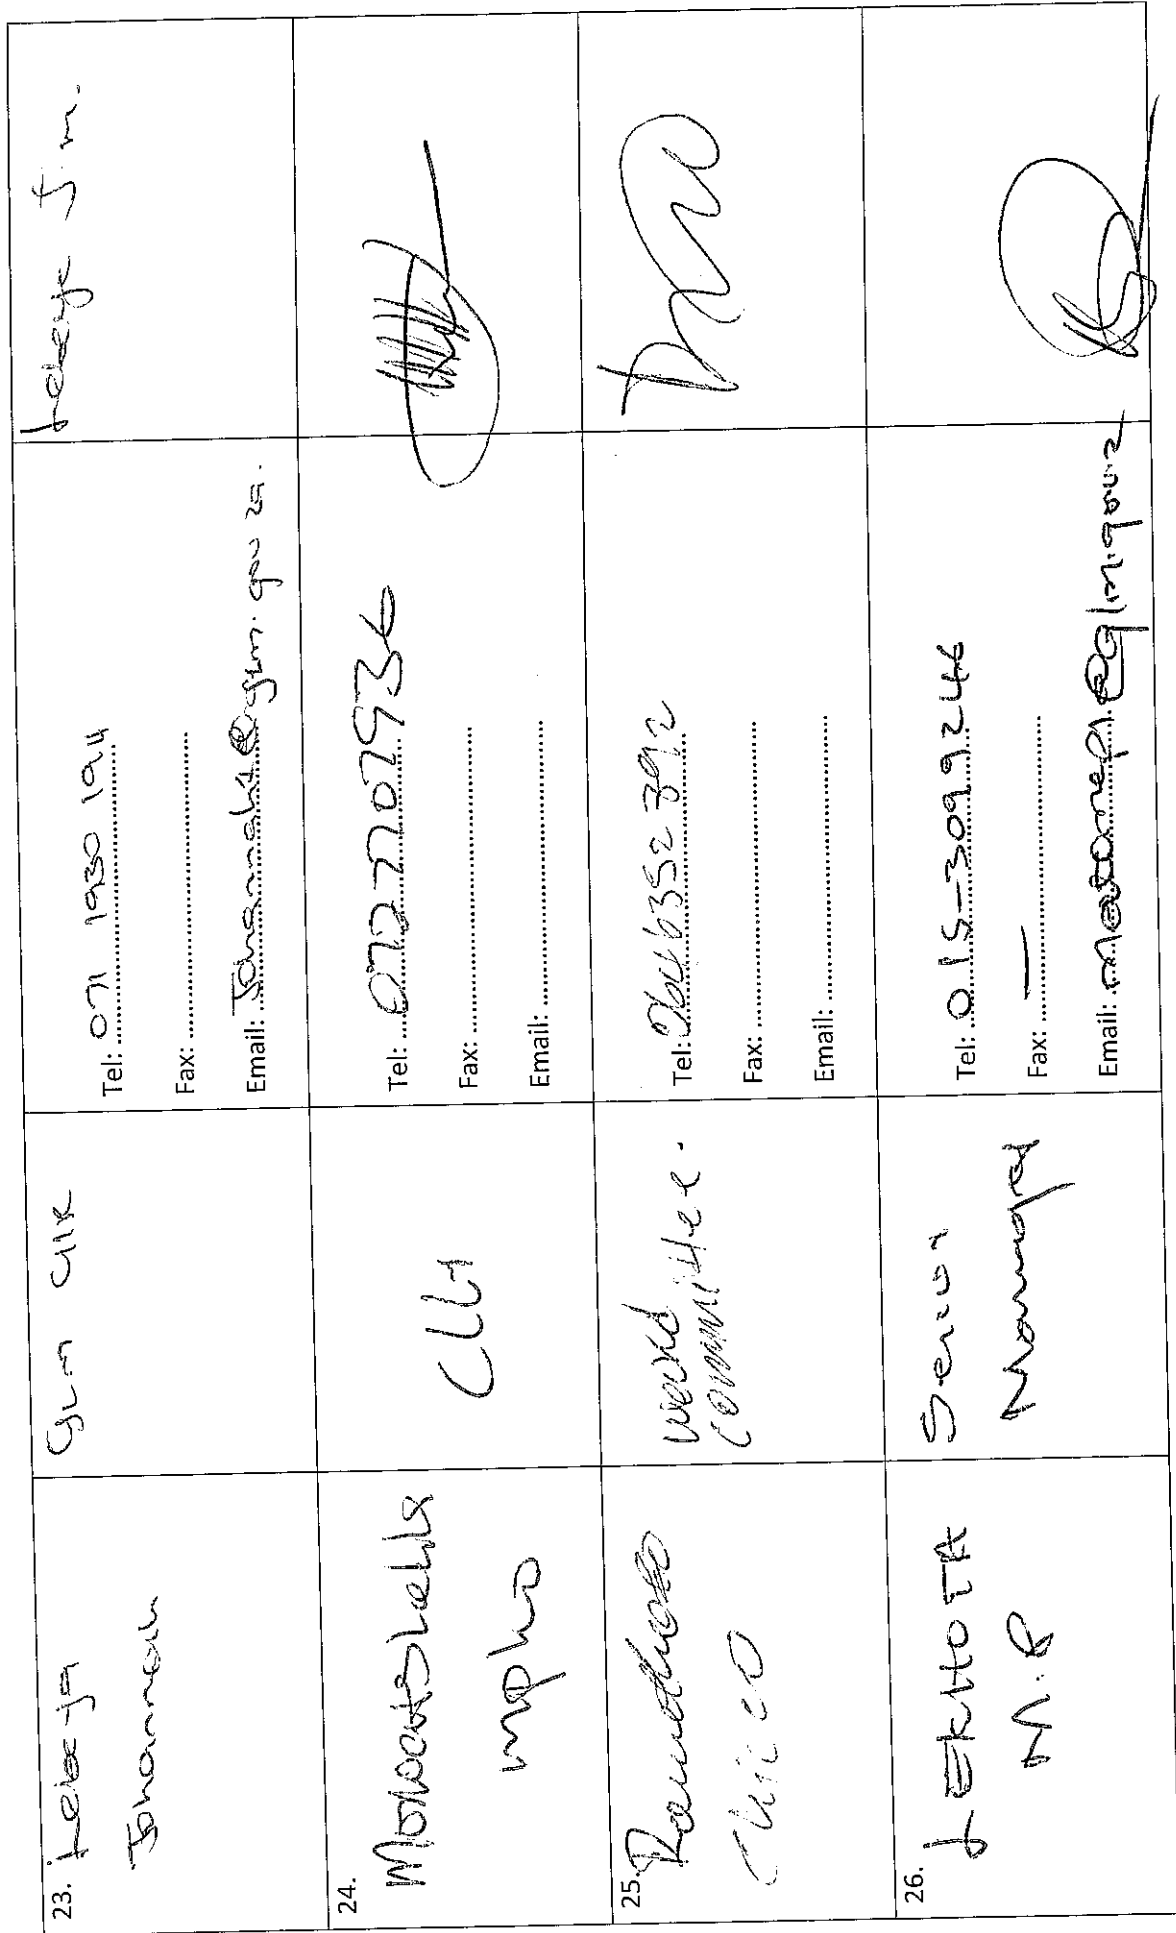 23. Lebeya
Johannah
GLM CLLR
Tel: 071 1930 194
Fax: ..........
Email: Johannahl@glm.gov.za.
Lebeya J.M.
24.
Mpho
Tel: 0727707936
Fax: ..........
Email: ..........
25.
Chicco
ward
committee.
Tel: 0646352392
Fax: ..........
Email: ..........
26.
LEKHOTA
M.R
Senior
Manager
Tel: 015-3099246
Fax: —
Email: